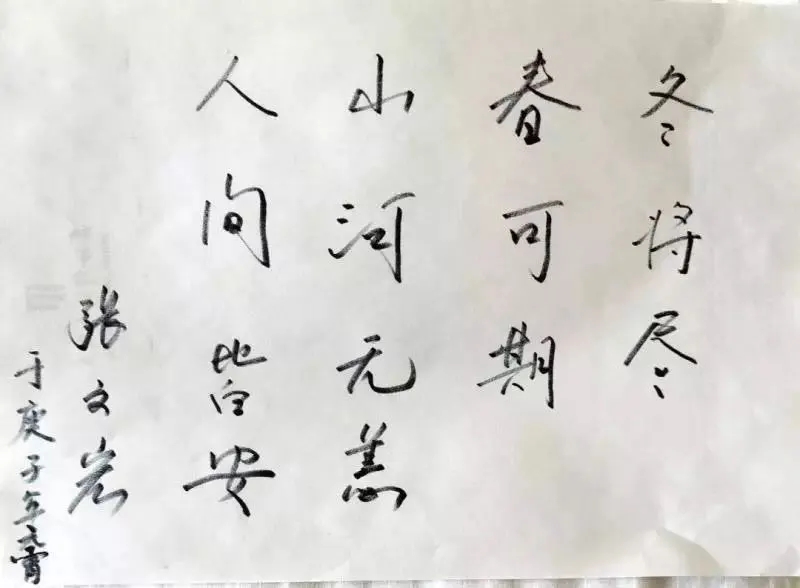 冬将尽
春可期
山河无恙
人间皆安
张文岩
于庚子年元霄